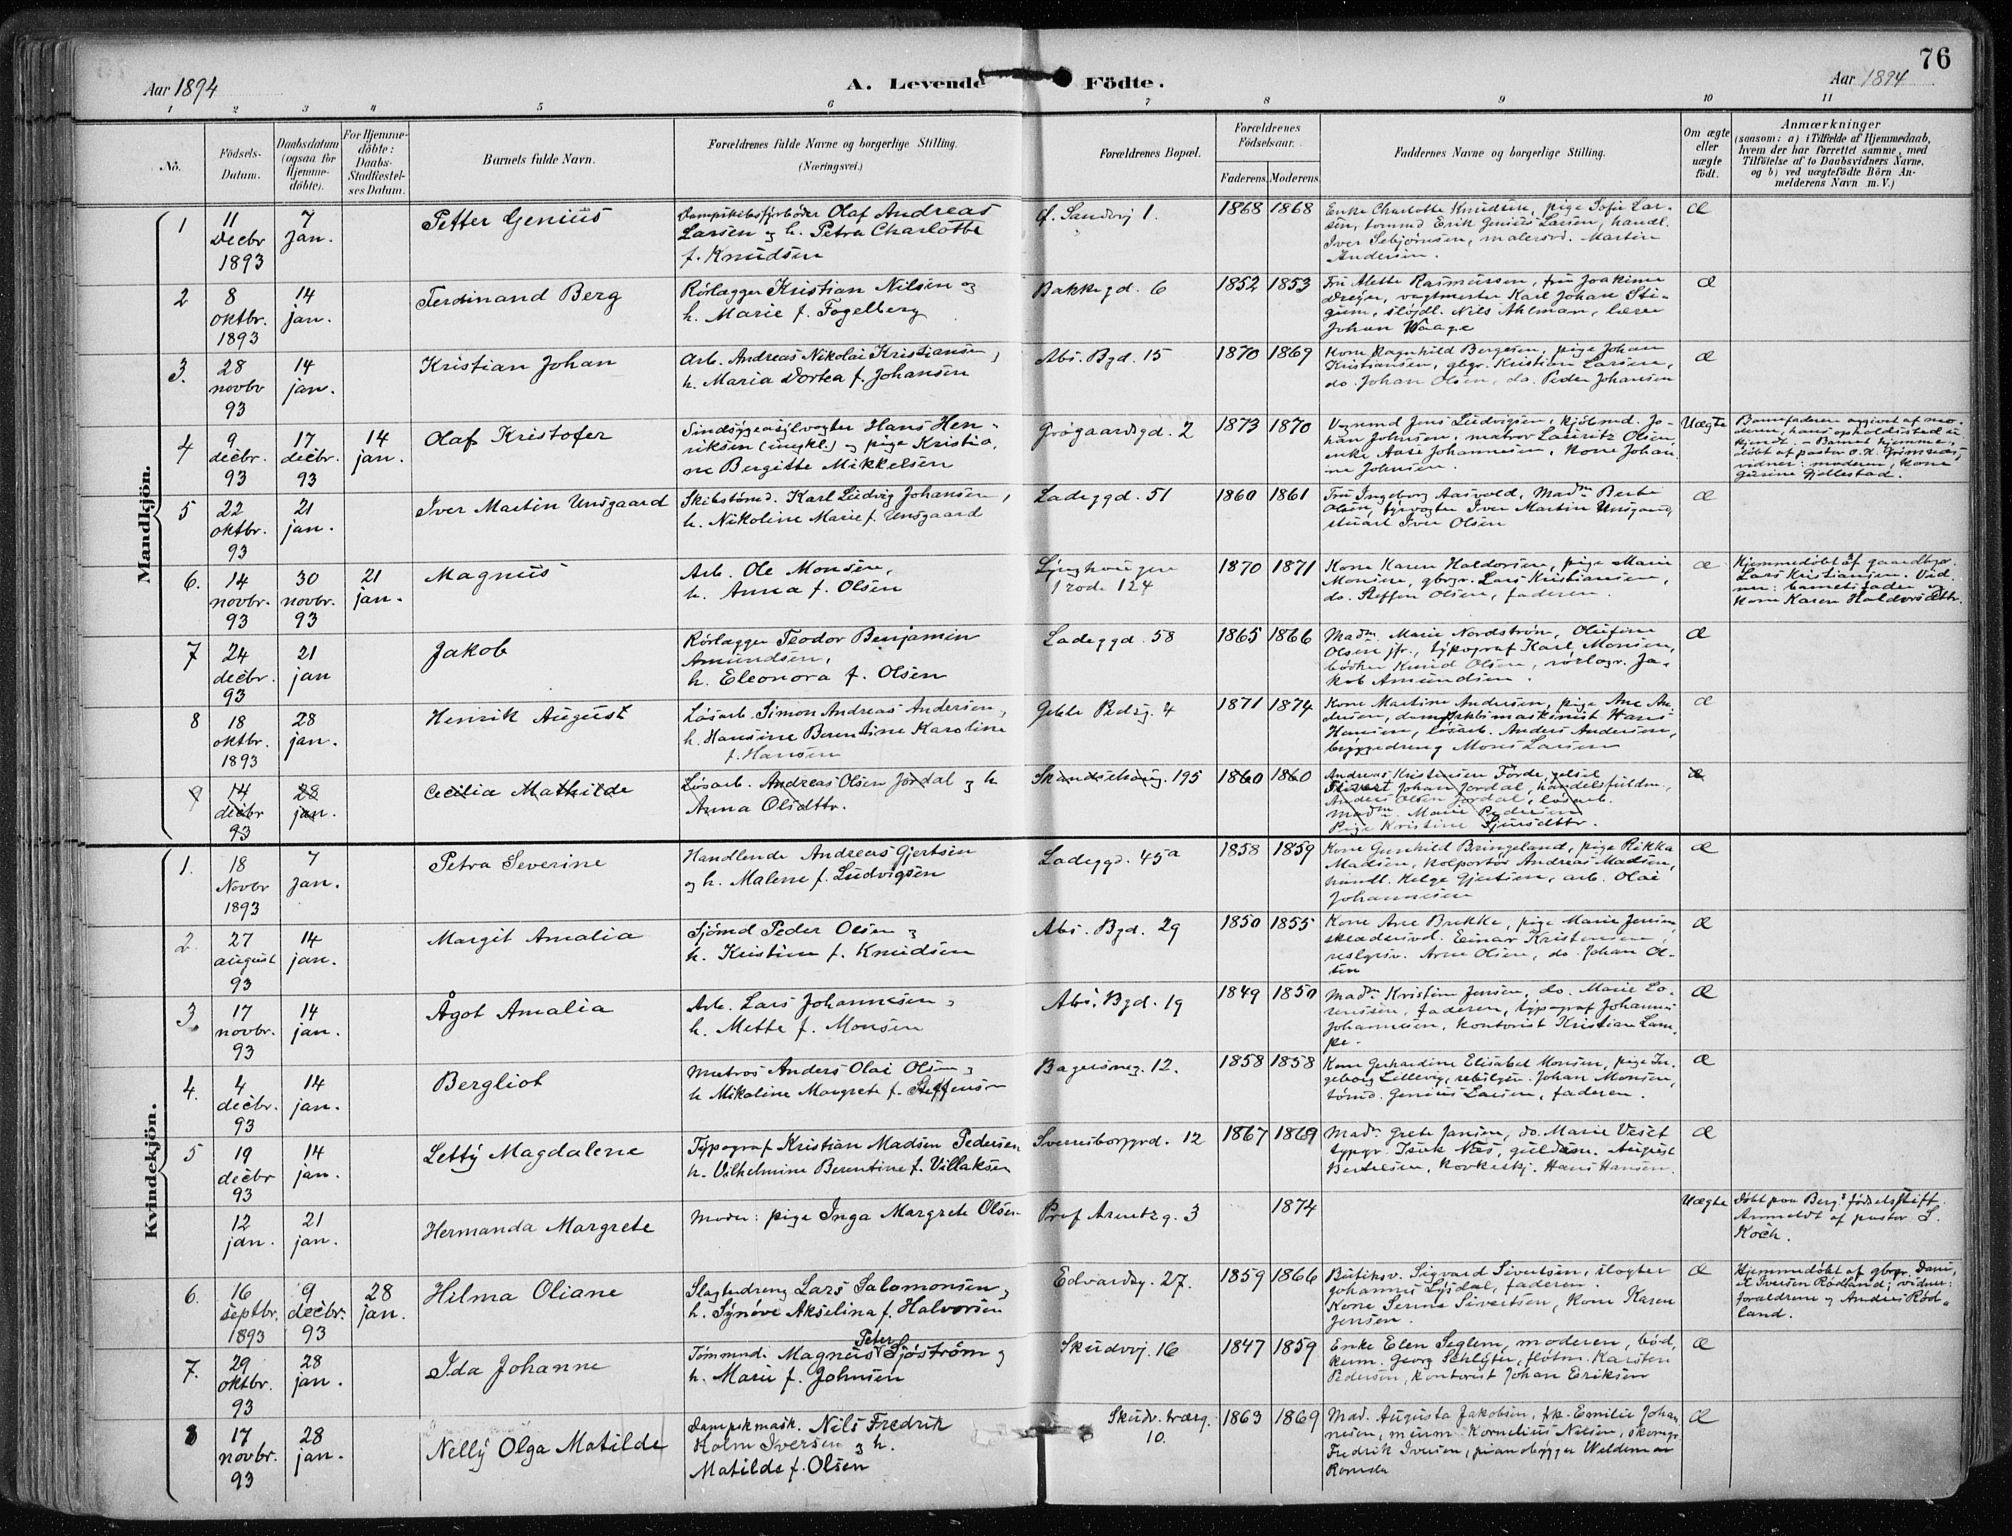 76
Aar 1894
A. Levende Födte.
Aar 1894
1 2 3 4 5 6 7 8 9 10 11
No.
Födsels-Datum.
Daabsdatum (ogsaa for Hjemme-döbte).
For Hjemme-döbte: Daabs-Stadfæstel-ses Datum.
Barnets fulde Navn.
Forældrenes fulde Navne og borgerlige Stilling. (Næringsvei.)
Forældrenes Bopæl.
Forældrenes Födselsaar.
Faderens. Moderens.
Faddernes Navne og borgerlige Stilling.
Om ægte eller uægte födt.
Anmærkninger
(saasom: a) i Tilfælde af Hjemmedaab, hvem der har forrettet samme, med Tilföielse af to Daabsvidners Navne, og b) ved uægtefödte Börn An-melderens Navn m. V.)
Mandkjön.
1 11 Decbr 1893 7 Jan. Petter Genius
Dampskibsfyrböder Olaf Andreas
Larsen og h. Petra Charlotte
f. Knudsen
Sandvig 1. 1868 1868
Enke Charlotte Knudsen, pige Sofie Lar-
sen, tømmd Erik Genius Larsen, handl.
Iver Sebjørnsen, malersvd. Martin
Andersen.
æ
2 8 oktbr. 1893 14 jan. Ferdinand Berg
Rörlægger Kristian Nilsen og
h. Marie f. Fogelberg
Bakkegd. 6 1852 1853
Fru Alette Rasmussen, fru Joakime
Dreyer, vagtmester Karl Johan Sti-
gum, sløjdl. Nils Ahlman, lærer
Johan Waage
æ
3. 28 novbr 93 14 jan. Kristian Johan
Arb. Andreas Nikolai Kristiansen,
h. Maria Dortea f. Johansen
Abs. Bgd. 15 1870 1869
Kone Ragnhild Bergesen, pige Johan
Kristiansen, gbgr. Kristian Larsen,
do. Johan Olsen, do. Peder Johansen
æ
4 9 decbr. 93 17 decbr. 93 14 jan. Olaf Kristofer
Sindsygeasylvogter Hans Hen-
riksen (ungkl.) og pige Kristia,
ne Bergitte Mikkelsen
Grögaardsgd. 2 1873 1870
Vognmd Jens Ludvigsen, kjölmd. Jo-
han Johnsen, matros Lauritz Olsen,
enke Aase Johannesen, kone Johan
ne Johnsen.
Uægte
Barnefaderen opgivet af mo-
deren, hans opholdssted u-
kjendt. - Barnet hjemme,
döbt af pastor O. K. Grimnes,
vidner: moderen, kone
Gurine Gjellestad.
5 22 oktbr. 93 21 jan. Iver Martin Unsgaard
Skibstømd. Karl Ludvig Johansen,
h. Nikoline Marie f. Unsgaard
Ladeggd. 51 1860 1861
Fru Ingeborg Aasvold, Madm Berte
Olsen, fyrvogter Iver Martin Unsgaard,
stuart Iver Olsen
æ
6. 14 novbr. 93 30 novbr. 93 21 jan. Magnus
Arb. Ole Monsen,
h. Anna f. Olsen
Lynghougen
1 rode 124
1870 1871
Kone Karen Haldorsen, pige Marie
Monsen, gbgr. Lars Kristiansen,
do. Steffen Olsen, faderen.
æ
Hjemmedøbt af gaardbgr.
Lars Kristiansen. Vid-
ner: barnets fader og
Kone Karen Haldorsdttr.
7 24 decbr. 93 21 jan Jakob
Rörlægger Teodor Benjamin
Amundsen,
h. Eleonora f. Olsen
Ladeggd. 58 1865 1866
Madm Marie Nordstrøm, Olufine
Olsen jfr., typograf Karl Monsen,
bödker Knud Olsen, rörlægr. Ja-
kob Amundsen.
æ
8 18 oktbr. 1893 28 jan. Henrik August
Løsarb. Simon Andreas Andersen,
h. Hansine Berentine Karoline
f. Hansen
Geble Pedsg. 4 1871 1874
Kone Martine Andersen, pige Ane An-
dersen, dampskbsmaskinist Hans
Hansen, løsarb. Anders Andersen,
bryggedreng Mons Larsen
æ
9 14 decbr 93 28 jan. Cecilia Mathilde
Løsarb. Andreas Olsen Jordal og h
Anna Olsdttr.
Skandsehaug. 195 1860 1860
Andreas Kristensen Förde,
Johan Jordal, handelsfuldm.,
Anders Olsen Jordal, løsarb.
Madm. Marie Pedersen
Pige Kristine Sjursdttr.
æ
Kvindekjön.
1. 18 Novbr 1893 7 Jan. Petra Severine
Handlende Andreas Gjertsen
og h. Malene f. Ludvigsen
Ladeggd. 45a 1858 1859
Kone Gunhild Bringeland, pige Rikka
Madsen, kolportör Andreas Madsen,
handl. Helge Gjertsen, arb. Olai
Johannesen
æ
2. 27 august 93 14 jan. Margit Amalia
Sjömd Peder Olsen og
h. Kristine f. Knudsen
Abs. Bgd. 29 1850 1855
Kone Ane Brekke, pige Marie Jensen,
skrædersvd. Einar Kristensen,
Arne Olsen, do. Johan Ol-
sen
æ
3 17 novbr. 93 14 jan. Ågot Amalia
Arb. Lars Johannesen,
h. Mette f. Monsen
Abs. Bgd. 19 1849 1850
Madm Kristine Jensen, do. Marie Lo-
rensen, faderen, typograf Johannes
Johannesen, kontorist Kristian Lam-
pe.
æ
4. 4 decbr. 93 14 jan. Bergliot
Matros Anders Olai Olsen og
h Mikaline Margrete f. Steffensen
Bagersmg. 12. 1858 1858
Kone Gerhardine Elisabet Monsen, pige In-
geborg Lillevig, Johan Monsen,
tömd. Genius Larsen, faderen.
æ
5 19 decbr 93 14 jan. Letty Magdalene
Typograf Kristian Madsen Pedersen
h. Vilhelmine Berentine f. Villaksen
Sverresborggd. 12 1867 1869
Madm Grete Jansen, do. Marie Veset
typgr. Isak Næs, guldsm. August
Bertelsen, Hans Hansen.
æ
12 jan. 21 jan. Hermanda Margrete
Moder: pige Inga Margrete Olsen
Prof Arentzg. 3 1874
Uægte
Döbt paa Bergs födselsstift.
Anmeldt af pastor S.
Koch.
6. 16 septbr. 1893 9 decbr. 93 28 jan. Hilma Oliane
Slagterdreng Lars Salomonsen,
h. Synove Akselina f. Halvorsen
Edvardsg. 27. 1859 1866
Butiksv. Sigvard Sivertsen, slagter
Johannes Lysdal, faderen.
Kone Serina Sivertsen, Kone Karen
Jensen.
æ
Hjemmedøbt af gbrgr. Dani,
el Iversen Rødland; vidner:
forældrene og Anders Rød-
land.
7. 29 oktbr. 93 28 jan. Ida Johanne
Tømmmd. Magnus Peter Sjöström og
h. Marie f. Johnsen
Skudevig. 16 1847 1859
Enke Elen Seglem, moderen, bød,
kerm. Georg Schlyter, fløtm. Karsten
Pedersen, kontorist Johan Eriksen
æ
8 17 novbr. 93 28 jan. Nelly Olga Matilde
Dampskmask. Nils Fredrik
Holm Iversen og h.
Matilde f. Olsen
Skudv. tværg.
10.
1863 1869
Mad. Augusta Jakobsen, frk. Emilie Johan
nesen, Kornelius Nilsen, skomgr.
Fredrik Iversen, pianobygger Waldemar
æ